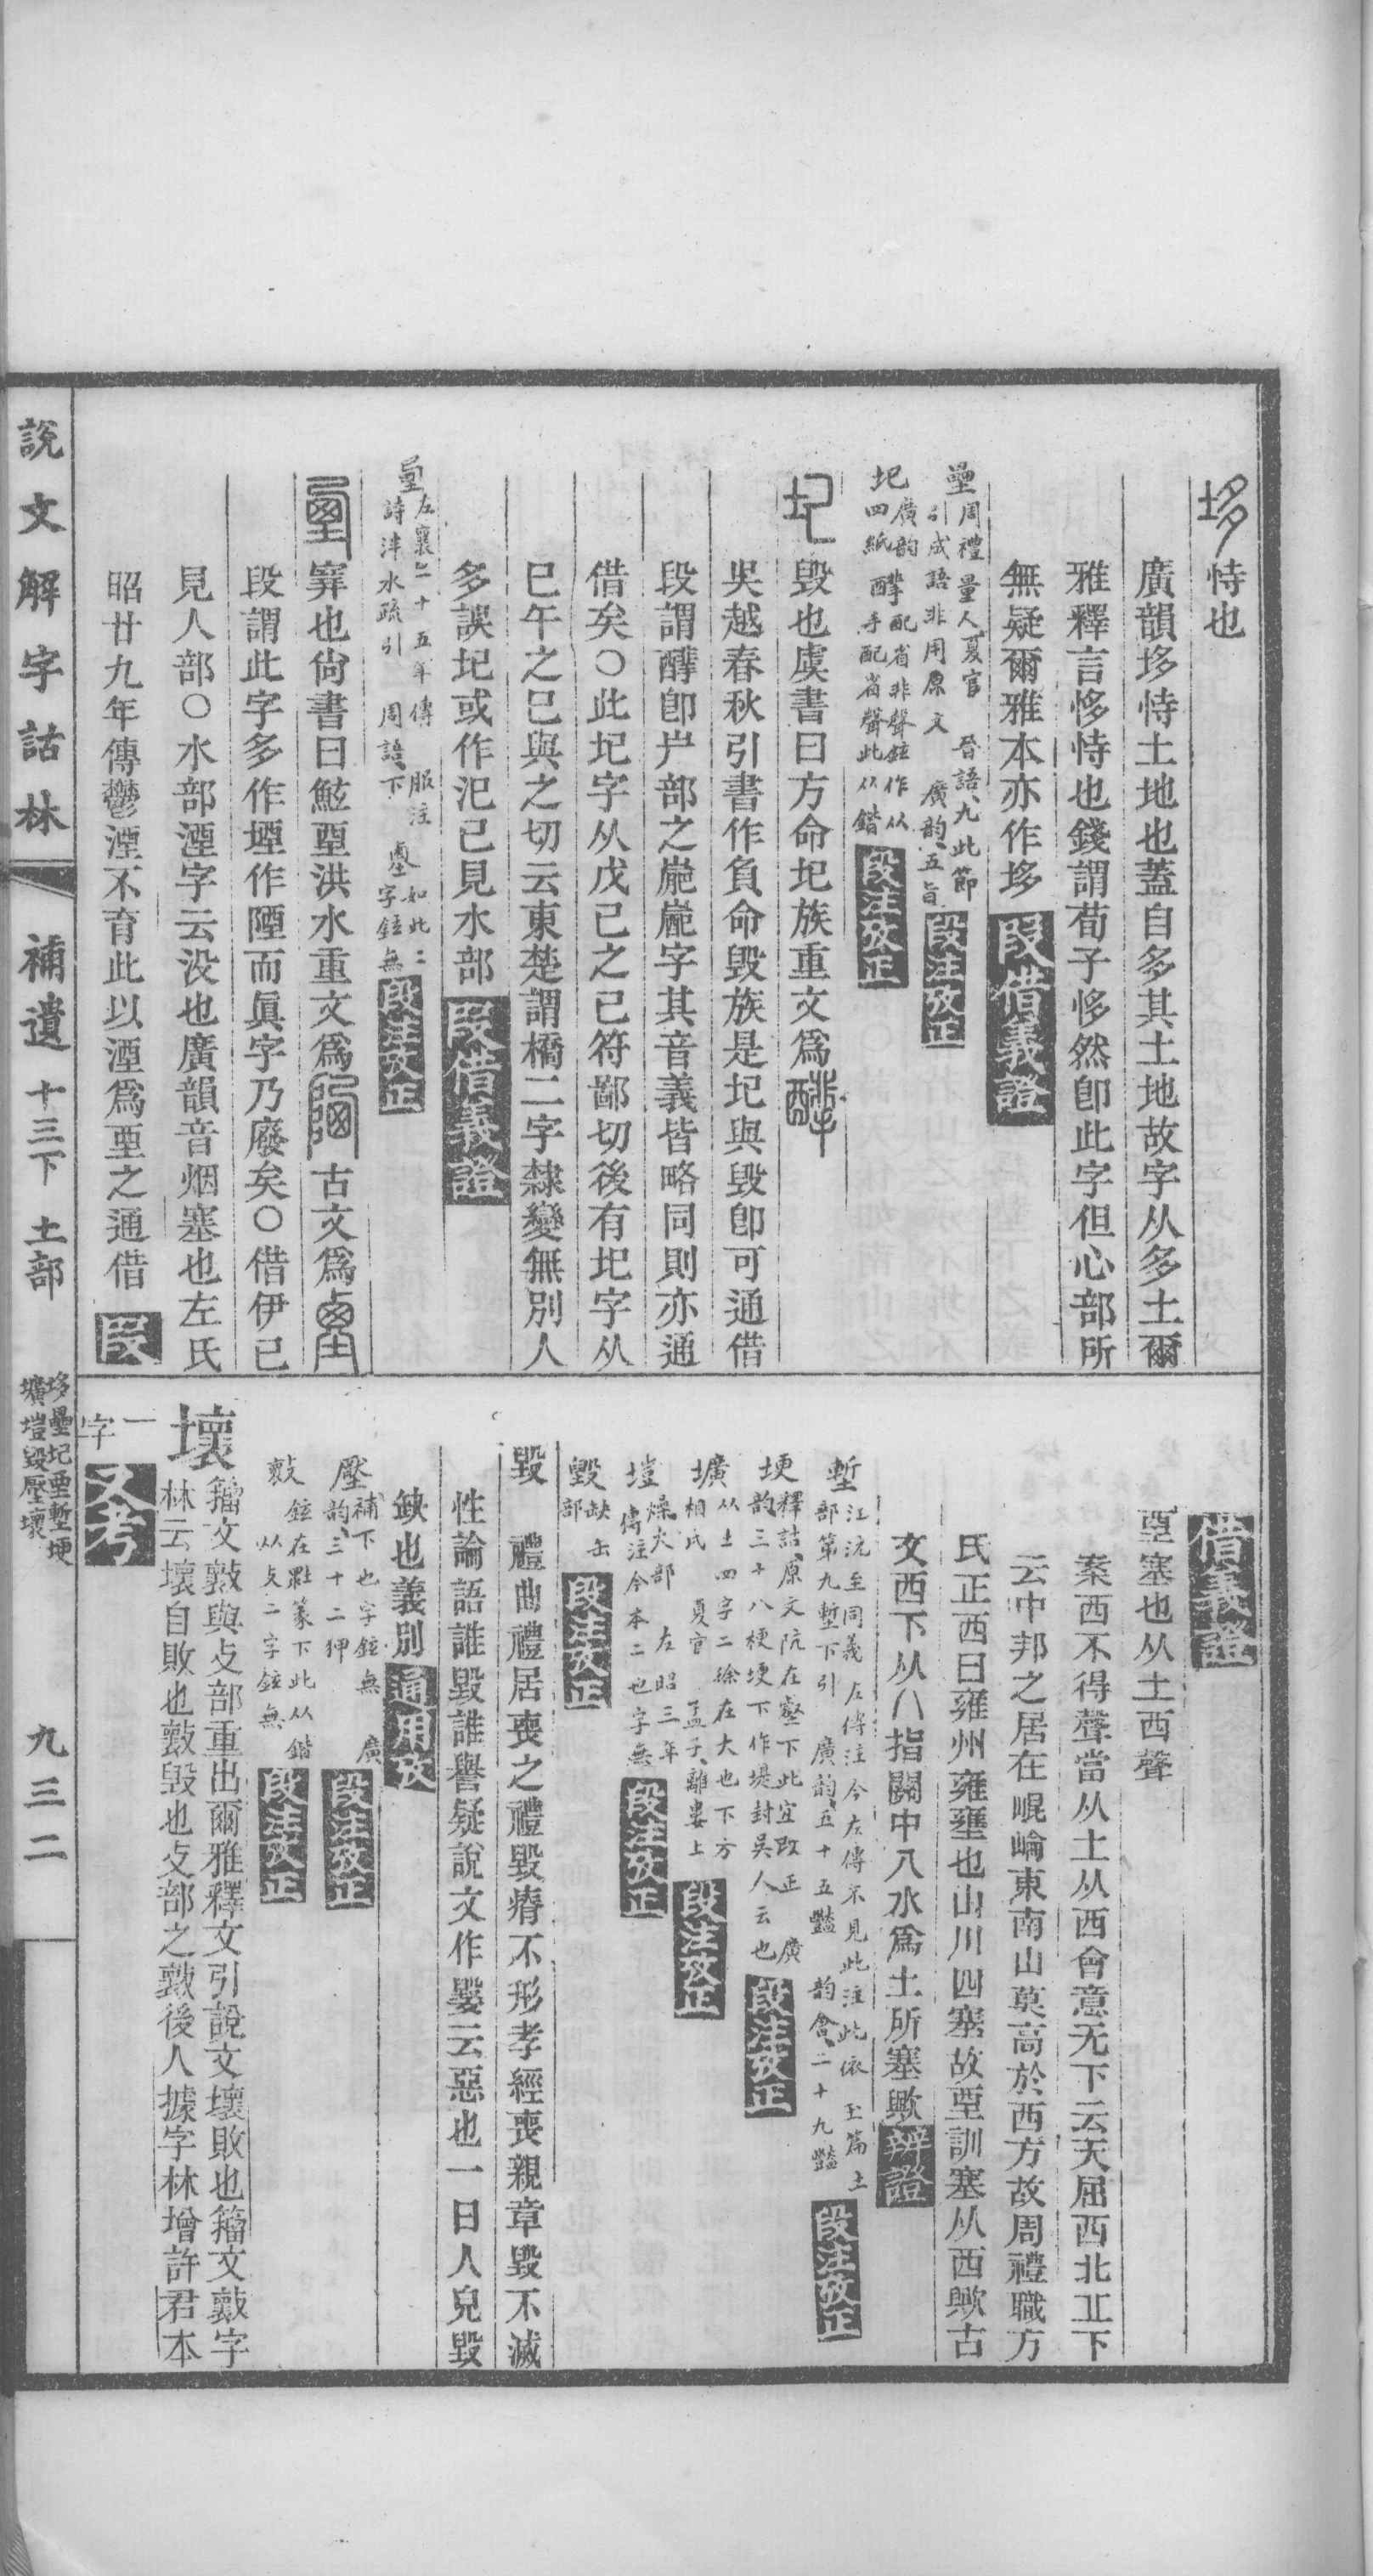 垑恃也
廣韻垑恃土地也蓋自多其土地故字从多土爾
雅釋言恀恃也錢謂荀子恀然卽此字但心部所
無疑爾雅本亦作垑 段借義證
壘周禮量人夏官 晉語九此節
引成語非用原文 廣韵五旨 段注攷正
圯廣韵嶏配省非聲鉉作从
四紙 酵手配省聲此从鍇 段注攷正
圯毀也虞書曰方命圯族重文爲
吳越春秋引書作負命毀族是圯與毀卽可通借
段謂酵卽屵部之嶏嶏字其音義皆略同則亦通
借矣○此圯字从戊己之己符鄙切後有圯字从
巳午之巳與之切云東楚謂橋二字隸變無別人
多誤圯或作汜已見水部 叚借義證
垔左襄二十五年傳 服注 如此二
詩泮水疏引 周語下 字鉉無 段注攷正
垔窒也尙書曰鮌垔洪水重文爲 古文爲
段謂此字多作堙作陻而眞字乃廢矣○借伊已
見人部○水部湮字云没也廣韻音烟塞也左氏
昭廿九年傳鬱湮不育此以湮爲垔之通借 叚
借義證
垔塞也从土西聲
案西不得聲當从土从西會意无下云天屈西北丌下
云中邦之居在崐崘東南山莫高於西方故周禮職方
氏正西曰雍州雍壅也山川四塞故垔訓塞从西歟古
文西下从八指闕中八水爲土所塞歟 辨證
塹江沅至同義左傳注今左傳不見此注此依玉篇土
部第九塹下引 廣韵五十五豔 韵會二十九豔 段注攷正
埂釋詁原文阬在壑下此宜改正 廣
韵三十八梗埂下作堤封吳人云也 段注攷正
壙从土四字二徐在大也下方
相氏 夏官 孟子離婁上 段注攷正
塏燥火部 左昭三年
傳注今本二也字無 段注攷正
毀缺缶
部 段注攷正
毀 禮曲禮居喪之禮毀瘠不形孝經喪親章毀不滅
性論語誰毀誰譽疑說文作嬰云惡也一曰人皃毀
缺也義別 通用攷
壓補下也字鉉無 廣
韵三十二狎 段注攷正
㱿鉉在㽕篆下此从鍇
从攴二字鉉無 段注攷正
壞籒文㱿與攴部重出爾雅釋文引說文壞敗也籒文㱿字
林云壞自敗也㱿毀也攴部之㱿後人據字林增許君本
一字 又考
說文解字詁林 補遺 十三下 土部 垑壘圯垔塹埂壙塏毀壓壞 九三二